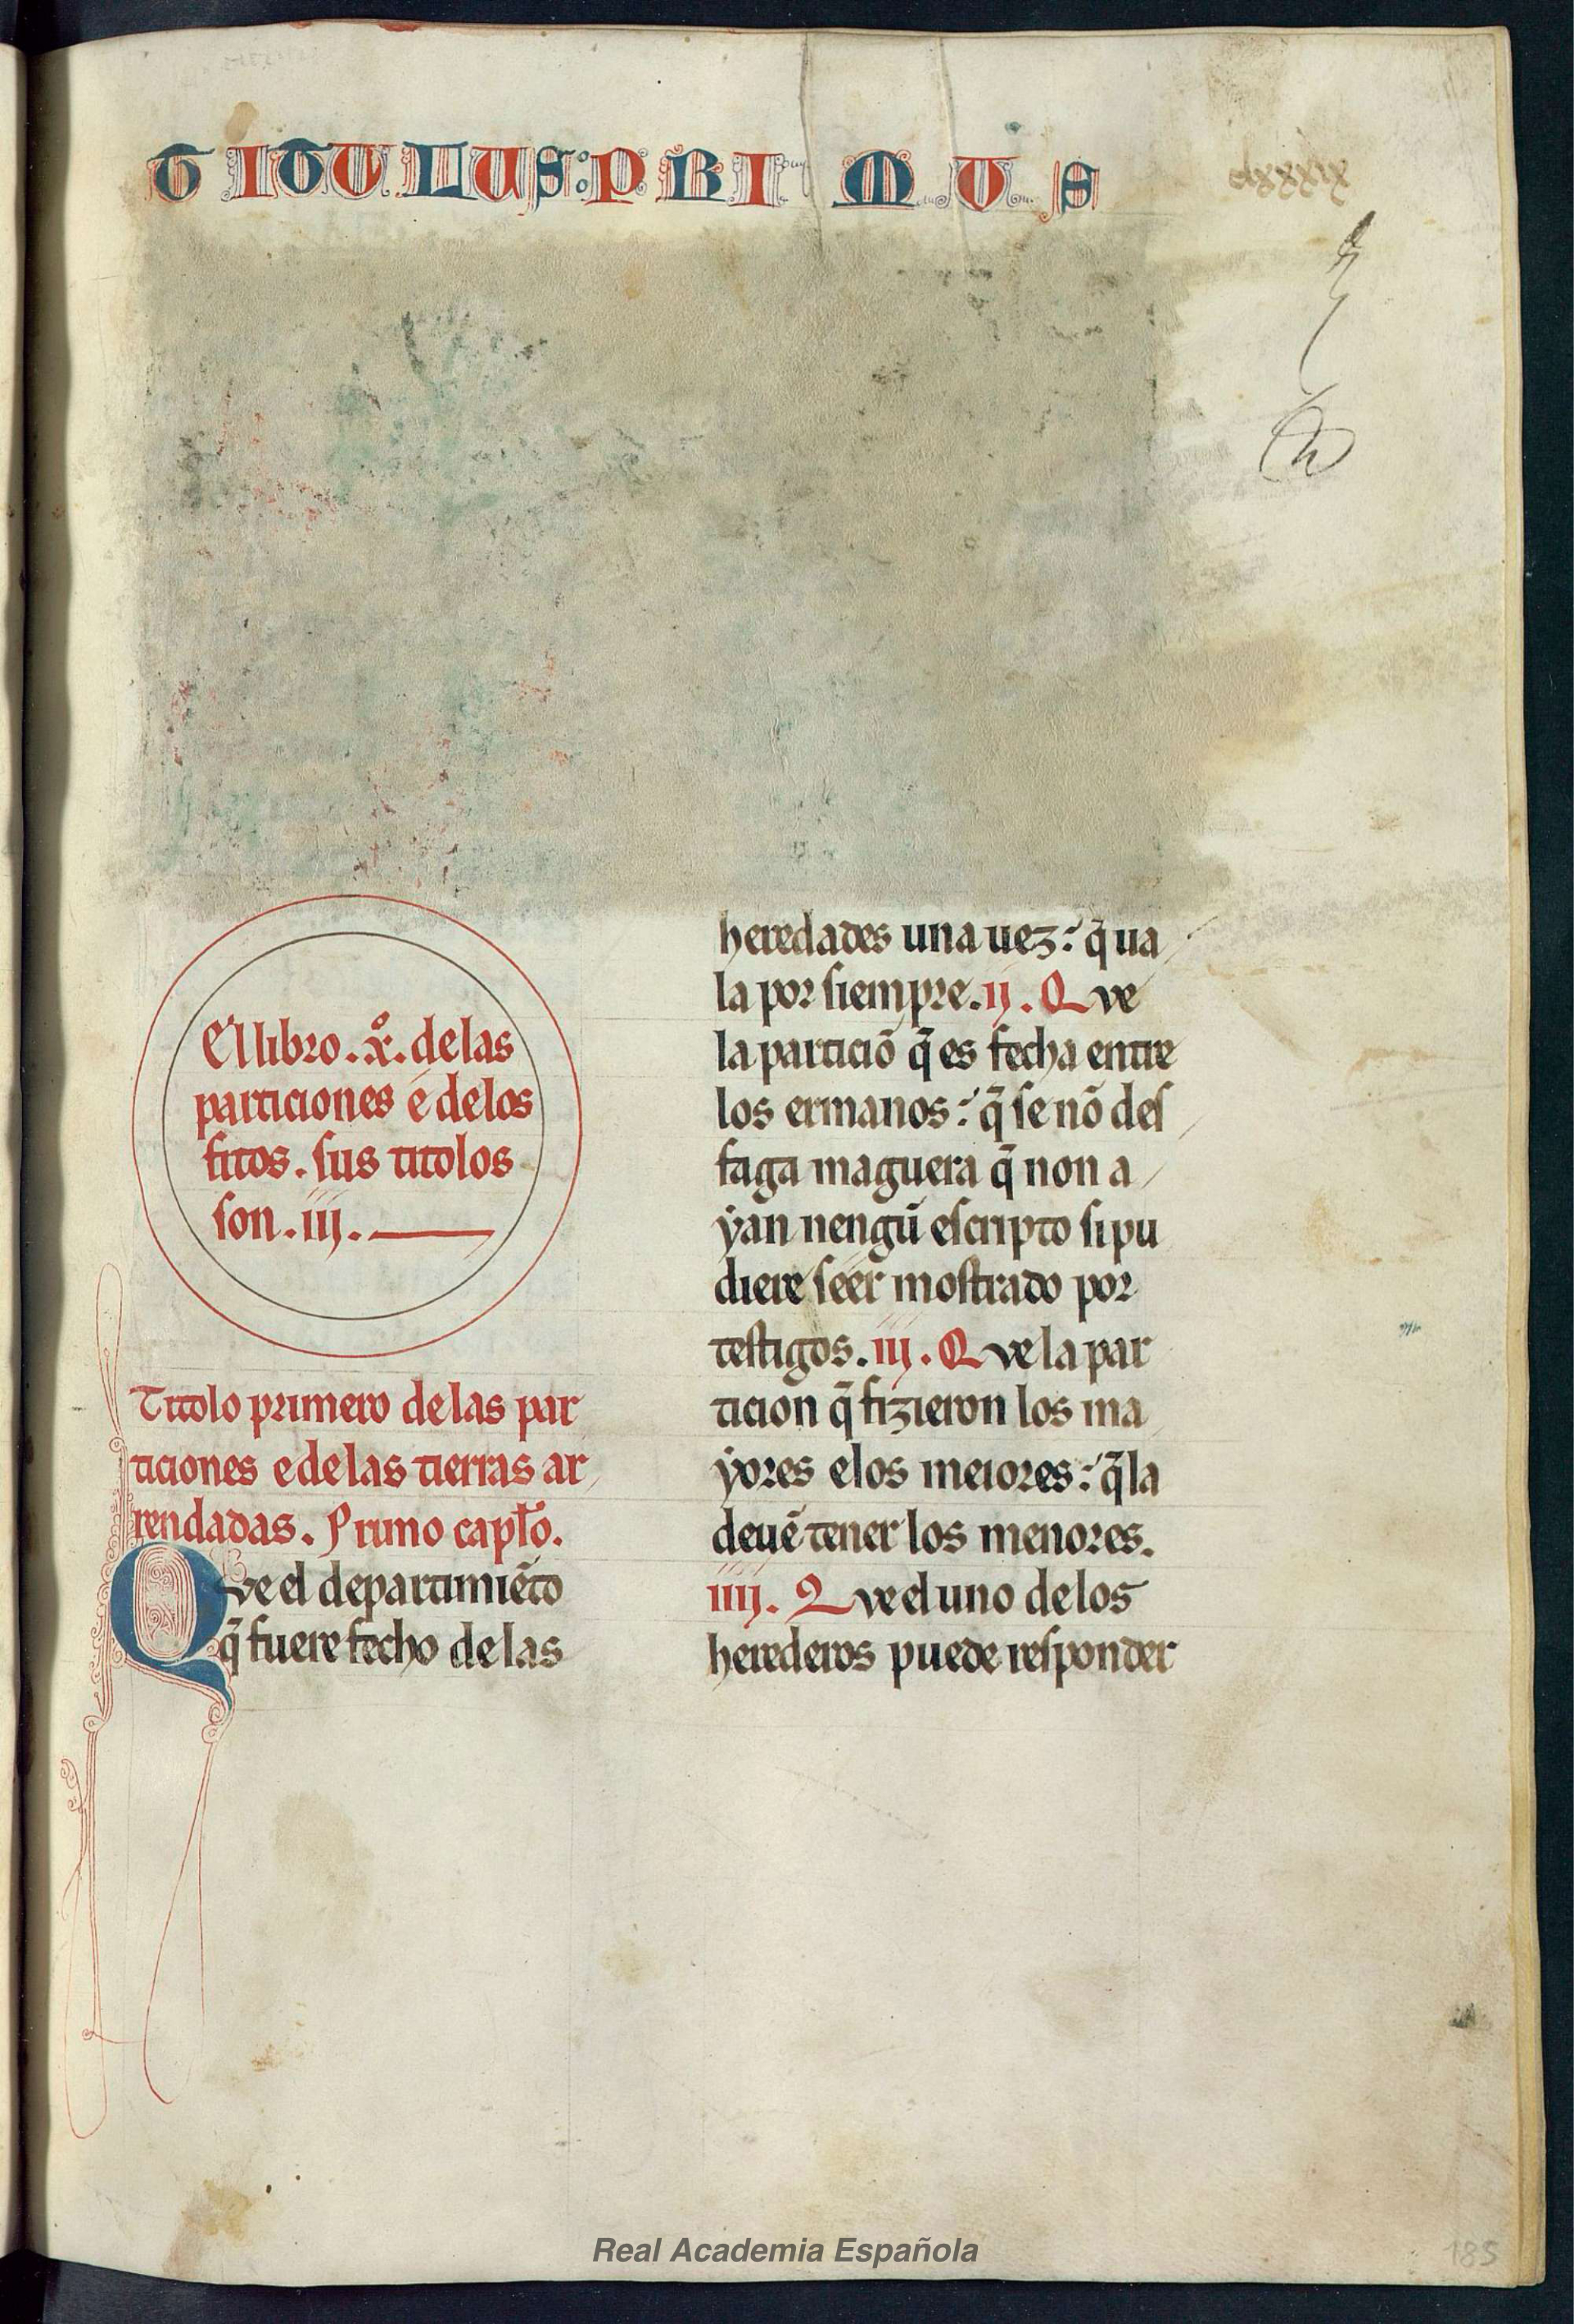 TITULUS: PRIMUS
clxxxix
El libro .xº. de las
particiones é de los
fitos. ſus titolos
ſon .iij.
Titolo primero de las par
ticiones e de las tierras ar
rendadas. Primo capło.
Que el departimiẽto
q̃ fuere fecho de las
heredades una uez: q̃ ua
la por ſiempre. ij. Que
la particiõ q̃ es fecha entre
los ermanos: q̃ ſe nõ deſ
faga maguera q̃ non a
ẏan nengũ eſcripto ſi pu
diere ſeer moſtrado por
teſtigos. iij. Que la par
ticion q̃ fizieron los ma
ẏores e los meiores: q̃ la
deuẽ tener los menores.
iiij. Que el uno de los
herederos puede reſponder
Real Academia Española
185